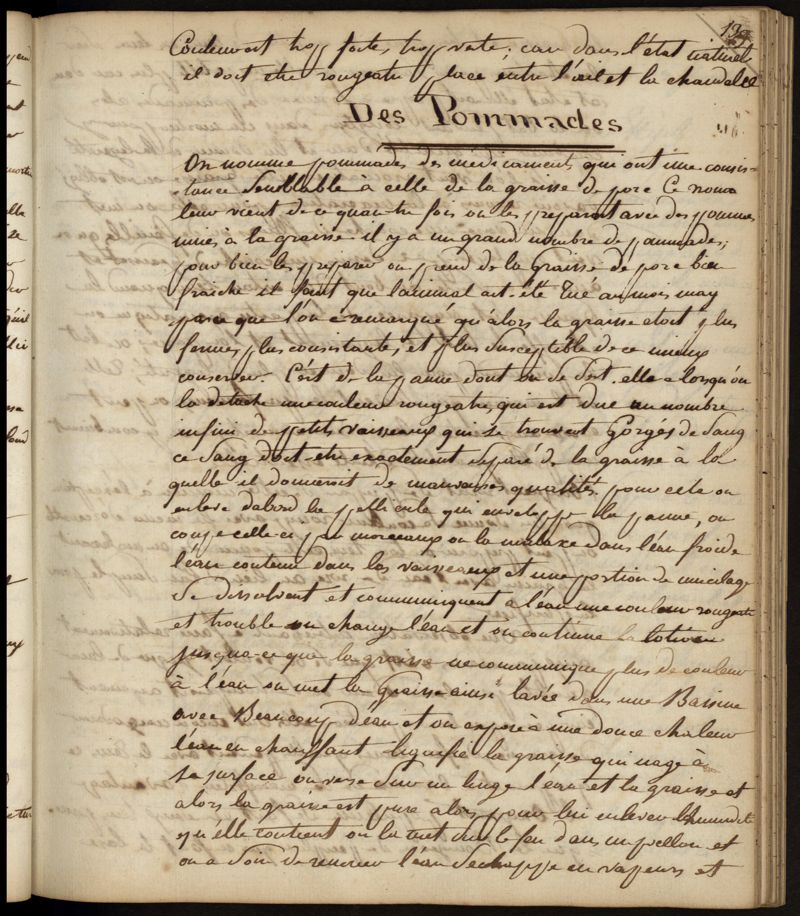 139
Couleur est trop forte, trop verte; car dans l'état naturel
il doit etre rougeatre placé entre l'œil et la chandelle
Des Pommades
On nomme pommades des médicaments qui ont une consis-
tance Semblable à celle de la graisse de porc Ce nom
leur vient de ce qu'autre fois on les preparoit avec des pommes
unies à la graisse. il y a un grand nombre de pommades;
pour bien les préparer on prend de la Graisse de porc bien
fraiche il faut que l'animal ait été Tué au mois may
parce que l'on a remarqué qu'alors la graisse etoit plus
ferme, plus consistante, et plus Susceptible de ce mieux
conserver. C'est de la panne dont on Se Sert. elle a lorsqu'on
la detache une couleur rougeatre, qui est due au nombre
infini de petits vaisseaux qui Se trouvent Gorgés de Sang
ce Sang doit etre exactement Séparé de la graisse à la
quelle il donneroit de mauvaises qualités. pour cela on
enleve dabord la pellicule qui enveloppe la panne, on
coupe celle ci par morceaux on la malaxe dans l'eau froide
l'eau contenu dans les vaisseaux et une portion de mucilage
Se dissolvent et communiquent à l'eau une couleur rougeatre
et trouble on change l'eau et on continue la lotion
jusqu'a-ce que la graisse ne communique plus de couleur
à l'eau on met la Graisse ainsi lavée dans une Bassine
avec Beaucoup d'eau et on expose à une douce chaleur
l'eau en chauffant liquifie la graisse qui nage à
Sa surface on verse Sur un linge l'eau et la graisse et
alors la graisse est pure alors pour lui enlever l'humidité
qu'elle contient on la met sur le feu dans un poellon et
on a Soin de remuer l'eau S'echappe en vapeurs et